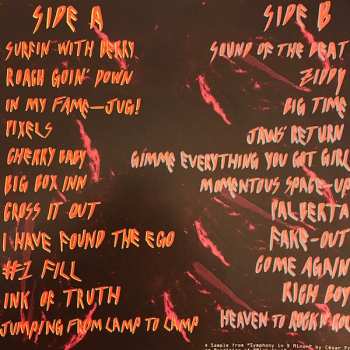 SIDE A
SURFIN WITH DERRY
ROACH GOIN' DOWN
IN MY FAME—JUG!
PIXELS
CHERRY BABY
BIG BOX INN
CROSS IT OUT
I HAVE FOUND THE EGO
#1 FILL
INK OF TRUTH
JUMPING FROM LAMP TO LAMP
SIDE B
SOUND OF THE BEAT
ZIPPY
BIG TIME
JAWS RETURN
GIMME EVERYTHING YOU GOT GIRL
MOMENTOUS SPACE-UP
PALBERTA
FAKE-OUT
COME AGAIN
RICH BOY
HEAVEN TO ROCK N ROLL
a Sample from "Symphony in D Minor" by César